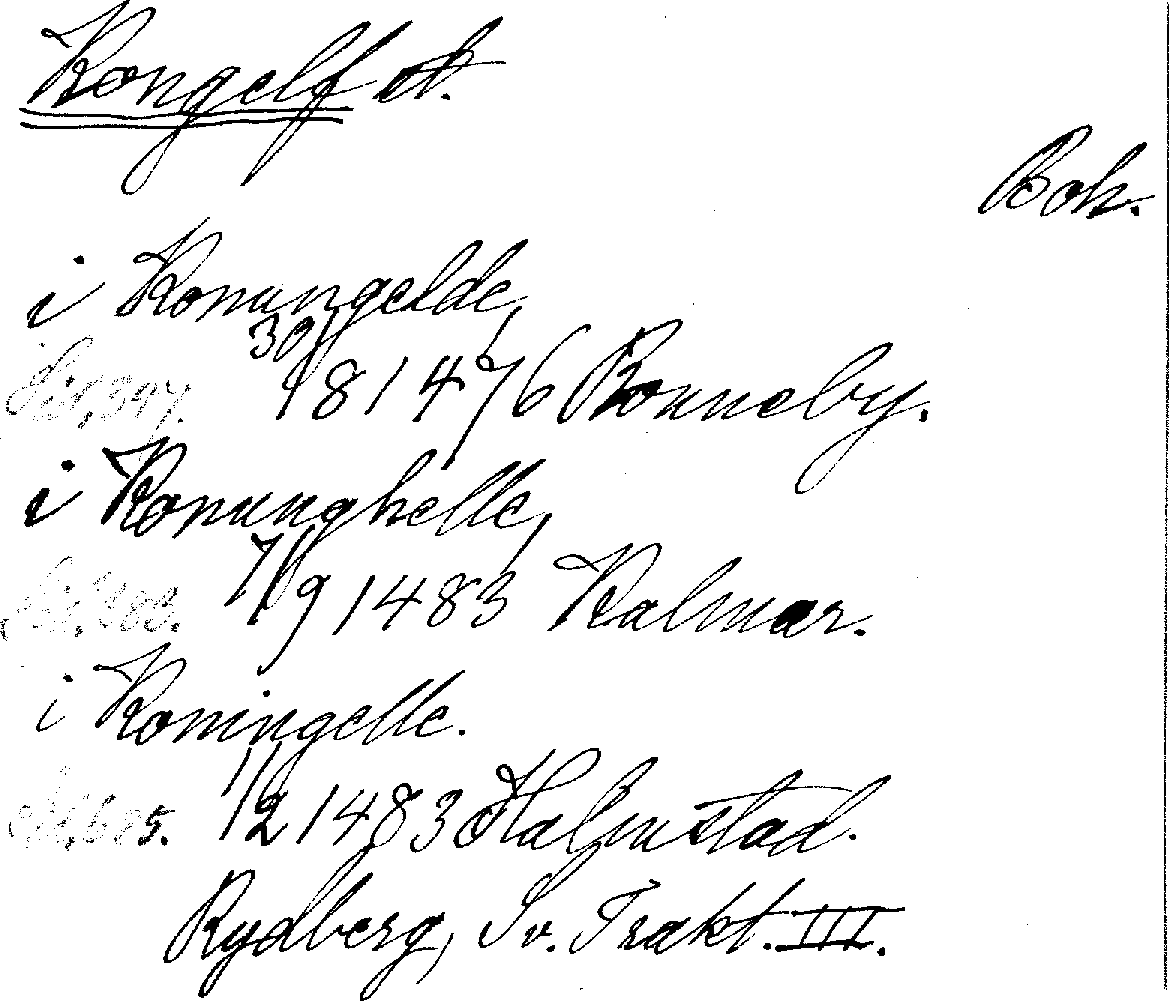 Kongelf st.
Boh.
i Konungelde,
Sid. 347. 30/9 81476 Ronneby.
i Konunghelle,
Sid. 383. 7/9 1483 Kalmar.
i Koningelle.
1/2 1483 Halmstad.
Rydberg, Sv. Trakt. III.